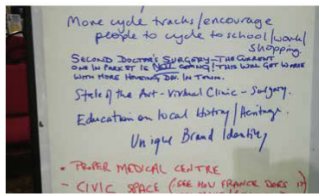 More cycle tracks/encourage
people to cycle to school/work/
shopping.
SECOND DOCTOR'S SURGERY - THE CURRENT
ONE IN PARK ST IS NOT COPING! THIS WILL GET WORSE
WITH MORE HOUSING DEV. IN TOWN.
State of the Art - Virtual Clinic - Surgery.
Education on local history/Heritage.
Unique Brand Identity
• PROPER MEDICAL CENTRE
- CIVIC SPACE (SEE HOW FRANCE DOES IT)